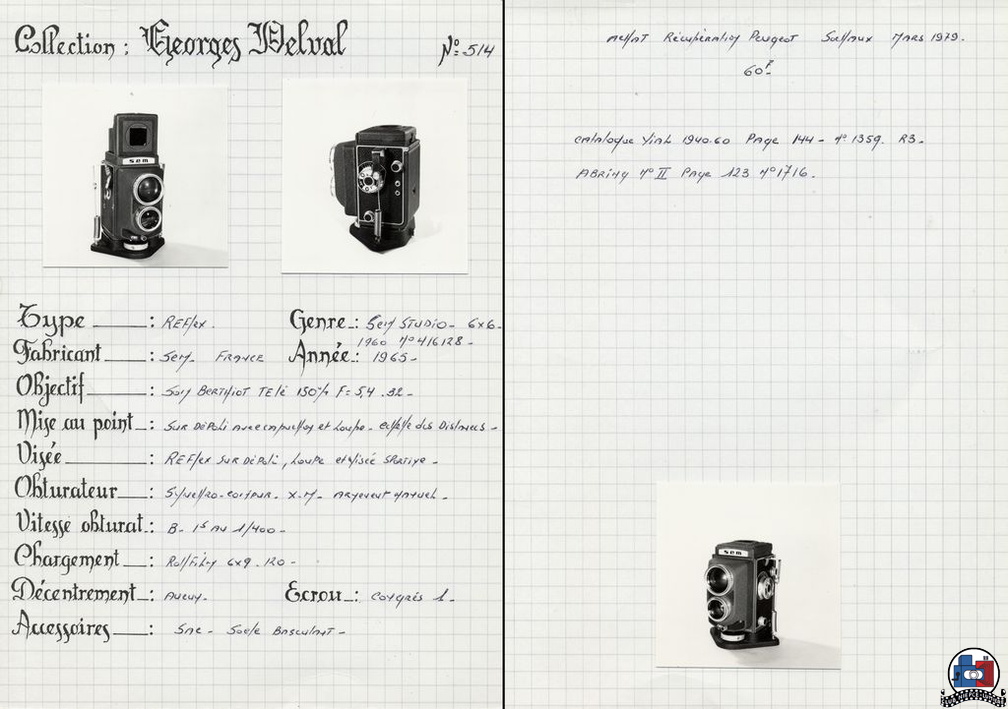 Collection : Georges Delval
Nº 514
sem
Type : REFlex.
Genre : Sem STUDIO - 6x6-
Fabricant : Sem. FRANCE
1960 nº 416128 -
Année : 1965 -
Objectif : Som BERTHIOT TELÉ 150% F=5,4 .32 -
Mise au point : SUR DÉPOLI avec capuchon et Loupe - échelle des Distances -
Visée : REFlex SUR DÉPOLI, Loupe et visée SPORTIVE -
Obturateur : Synchro-compur. X-M- Armement manuel -
Vitesse obturat : B - 1S AU 1/400 -
Chargement : RollFilm 6x9 . 120 -
Décentrement : Aucun -
Ecrou : Congrès 1 -
Accessoires : Sac - Socle Basculant -
Achat Récupération Peugeot Sochaux MARS 1979.
60F
catalogue Vial 1940.60 Page 144 - nº 1359. R3 -
ABRING nº II Page 123 nº 1716.
sem